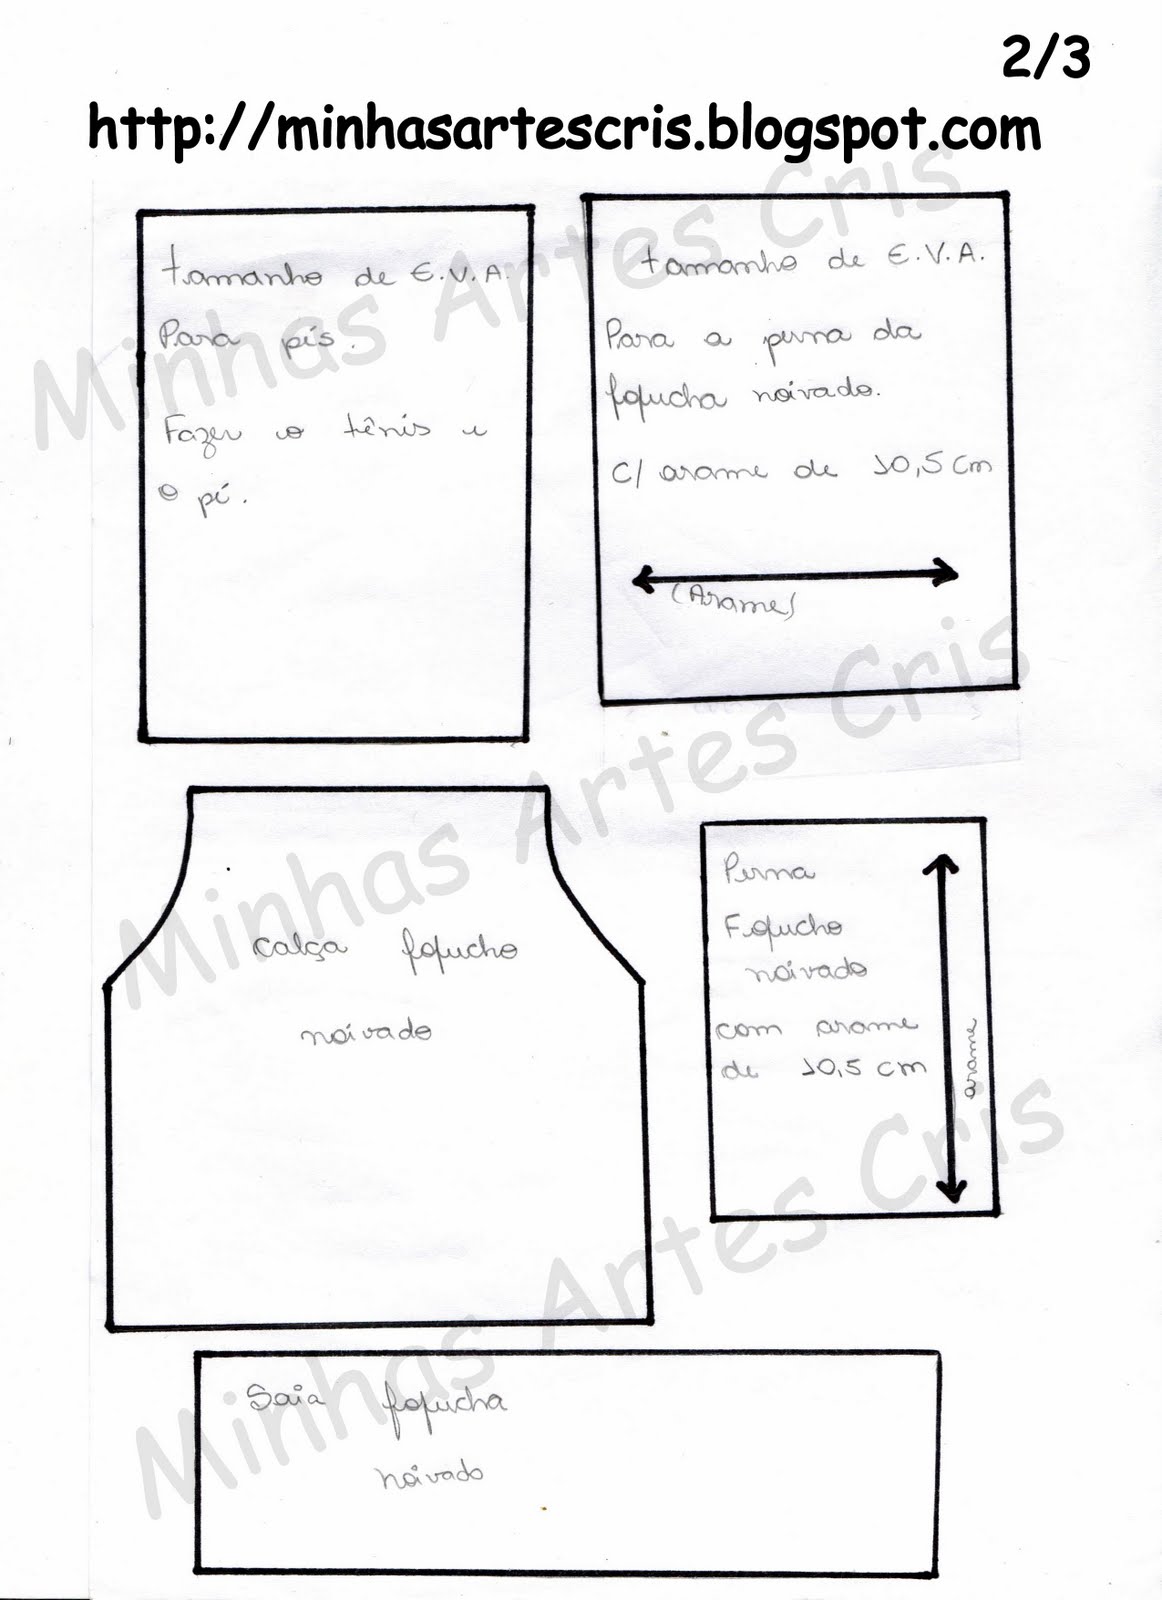 2/3
http://minhasartescris.blogspot.com
tamanho de E.V.A.
Para pés.
Fazer o tênis e
o pé.
tamanho de E.V.A.
Para a perna da
fofucha noivado.
C/ arame de 10,5 cm
(Arame)
calça fofucho
noivado
Perna
Fofucho
noivado
com arame
de 10,5 cm
arame
Saia fofucha
noivado
Minhas Artes Cris
Minhas Artes Cris
Minhas Artes Cris